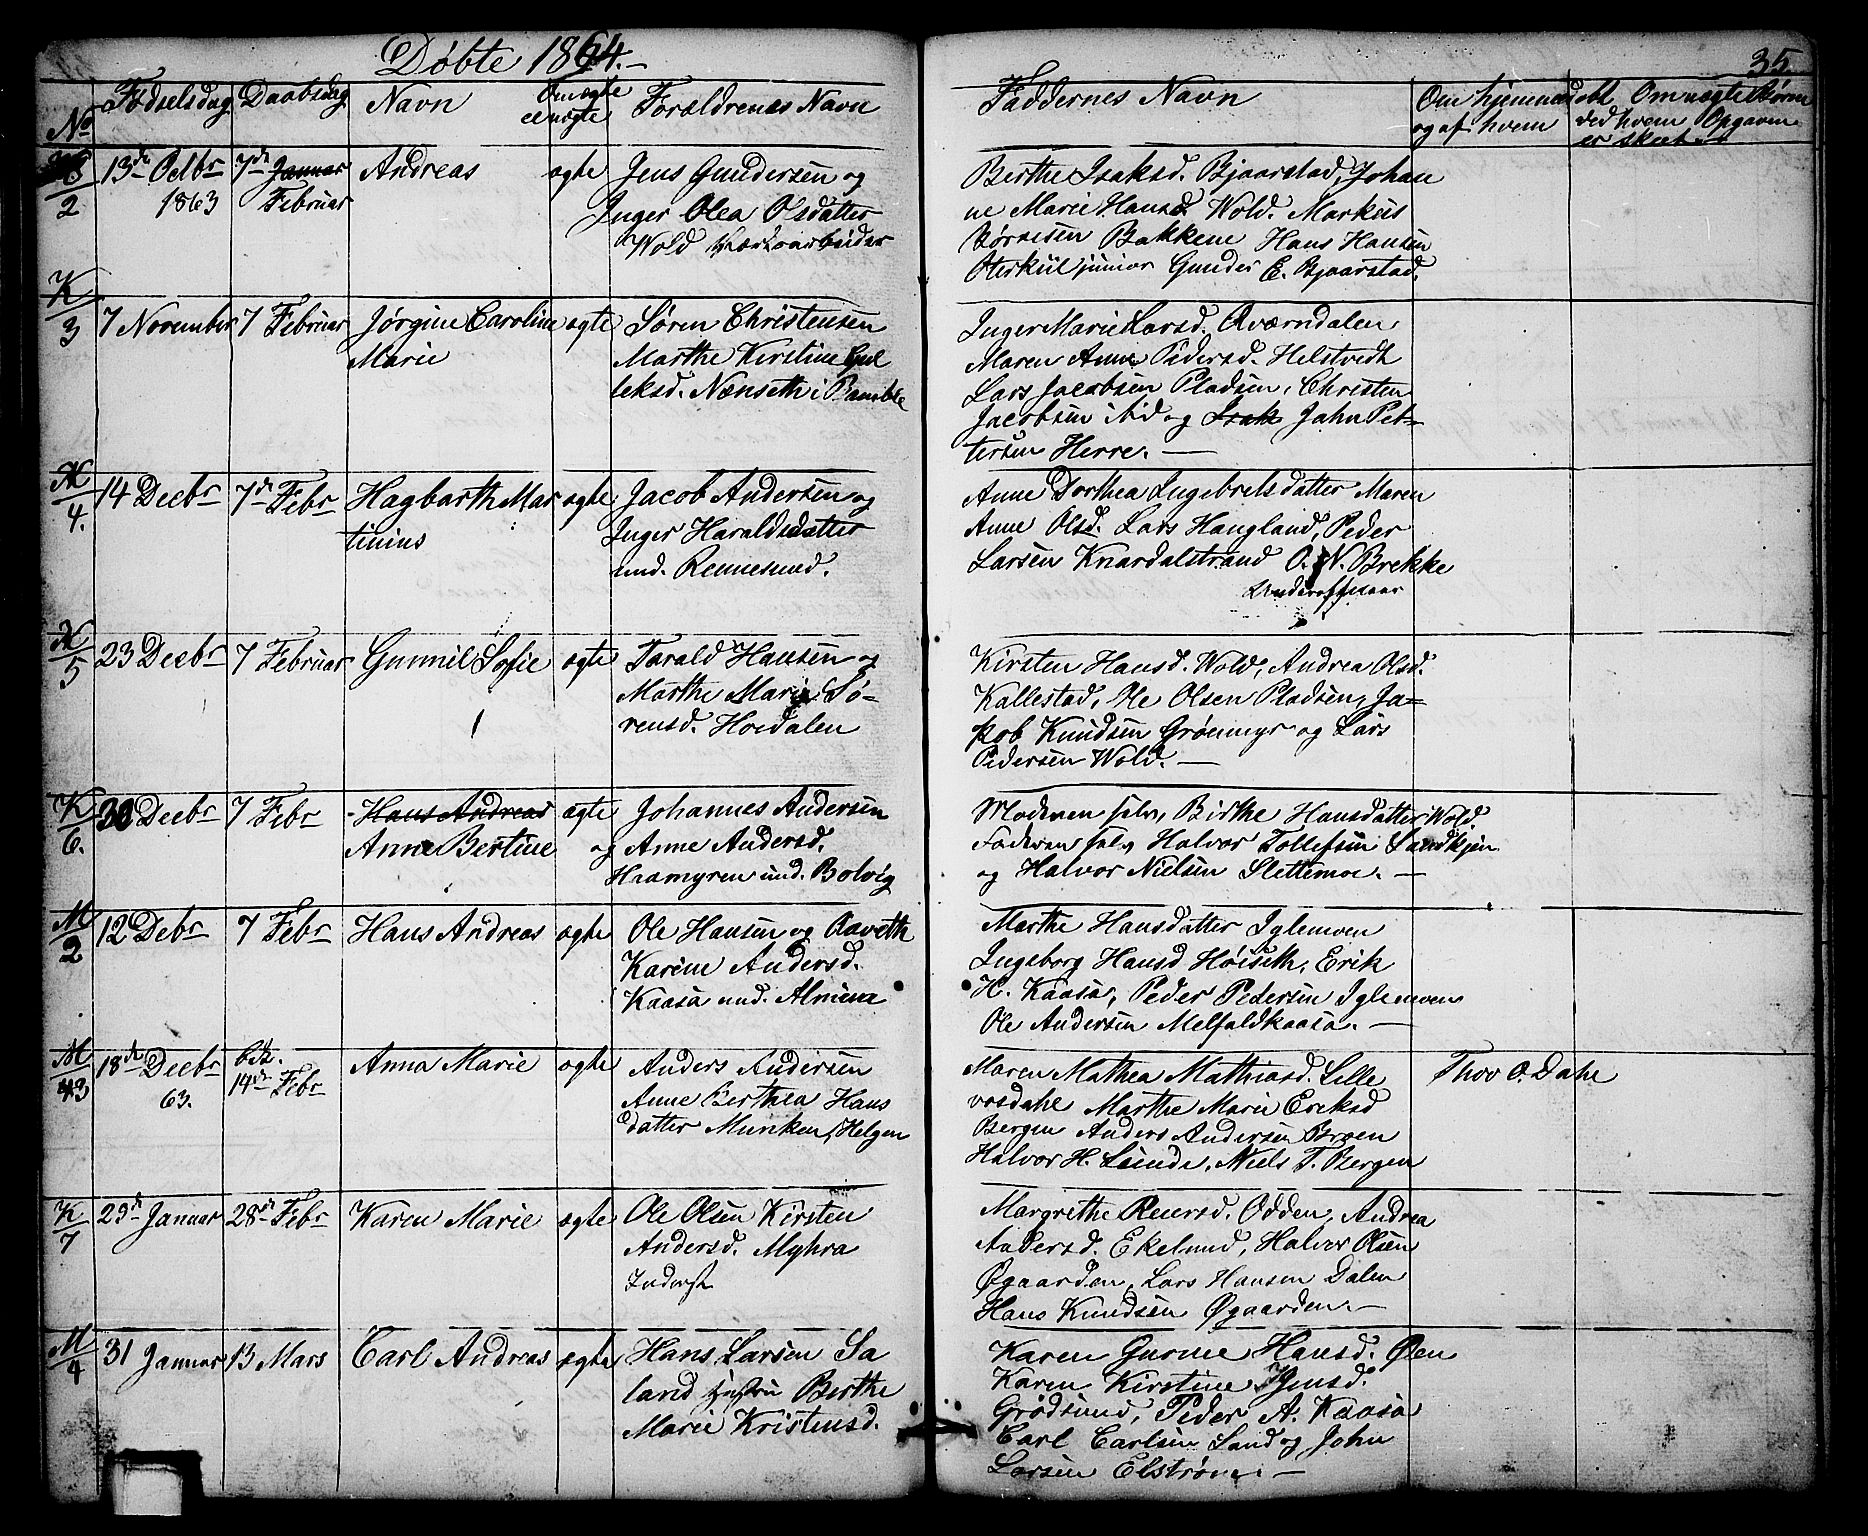 Døbte 1864.-
35.
No Fødselsdag Daabsdag Navn Om ægte uægte Forældrenes Navn
Faddernes Navn Om hjemmedøbt og af hvem Om uægte Børn
ved hvem Opgaven
er skeet
2 13de Octbr 7de Januar Andreas ægte Jens Gundersen og
1863 Februar Inger Olea Olsdatter
Wold
Berthe Isaksd. Bjaarstad, Johan
ne Marie Hansd. Wold. Markus
Bakkene Hans Hansen
Oterkiil junior Gunder E. Bjaarstad.
K
3 7 November 7 Februar Jørgine Caroline ægte Søren Christensen
Marie Marthe Kirstine Gul
leksd. Nænseth i Bamble
Inger Marie Larsd. Qværndalen
Maren Anne Pedersd. Helstvedt
Lars Jacobsen Pladsen, Christen
Jacobsen ibid og Isak John Pet-
tersen Herre. -
K
4. 14 Decbr 7de Febr Hagbarth Mar ægte Jacob Andersen og
tinius Inger Haraldsdatter
und. Rennesund.
Anne Dorthea Ingebretsdatter Maren
Anne Olsd. Lars Haugland, Peder
Larsen Knardalstrand O. N. Brekke
Underofficeer
K
5 23 Decbr 7 Februar Gunnil Sofie ægte Tarald Hansen og
Marthe Marie Sø-
rensd. Hoedalen
Kirsten Hansd. Wold, Andrea Olsd.
Kallestad, Ole Olsen Pladsen, Ja-
kob Knudsen Grønmyr og Lars
Pedersen Wold. -
K
6. 30 Decbr 7 Febr Hans Andreas ægte Johannes Andersen
Anne Bertine og Anne Andersd.
Haamyren und. Bolvig
Moderen selv, Birthe Hansdatter Wold
Faderen selv Halvor Tollefsen Sandkjen
og Halvor Nielsen Slettemoe. -
M
2 12 Decbr 7 Febr Hans Andreas ægte Ole Hansen og Aaveth
Karine Andersd.
Kaasa und. Almene
Marthe Hansdatter Iglemoen
Ingeborg Hansd Høiseth, Erik
H. Kaasa, Peder Pedersen Iglemoen
Ole Andersen Melfaldkaasa. -
M
3 18de Decbr 14de Febr Anna Marie ægte Anders Andersen
63. Anne Berthea Hans
datter Munken, Helgen
Maren Mathea Mathiasd. Lille
vosdahl Marthe Marie Eriksd
Bergen Anders Andersen Broen
Halvor H. Lunde, Niels T. Bergen
Thov O. Dahl
K
7 29de Januar 28de Febr Karen Marie ægte Ole Olsen Kirsten
Andersd. Myhra
Inderst
Margrethe Reiersd. Odden, Andrea
Andersd. Ekelund, Halvor Olsen
Øgaarden, Lars Hansen Dalen
Hans Knudsen Øgaarden. -
M
4 31 Januar 13 Mars Carl Andreas ægte Hans Larsen Sa
land Hustru Berthe
Marie Kristensd.
Karen Gurine Hansd. Øen
Karen Kirstine Jensd.
Grødsund, Peder A. Kaasa
Carl Carlsen Sand og John
Larsen Elstrøm. -